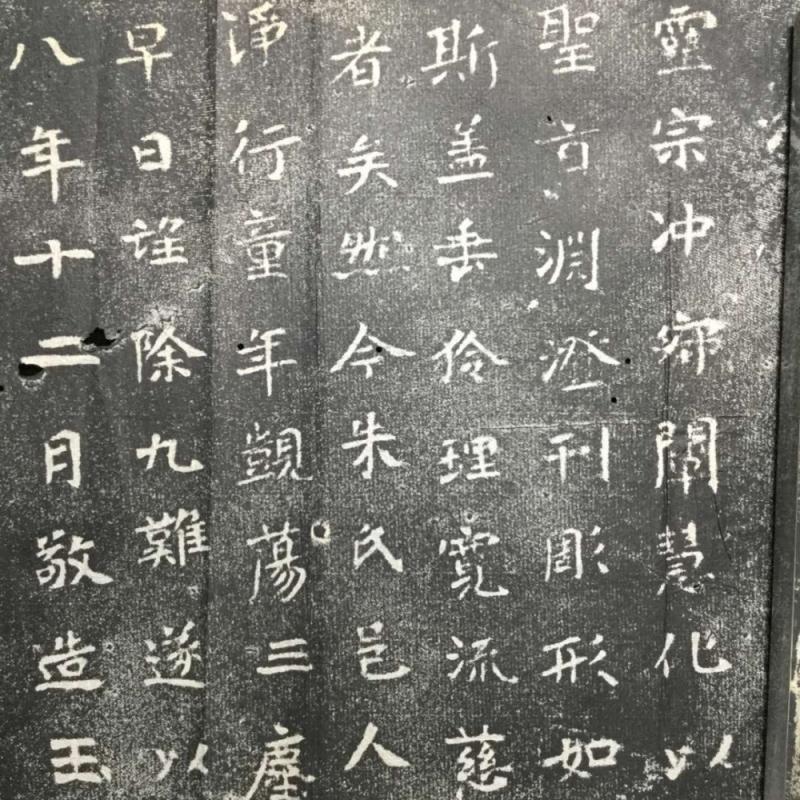 靈宗冲寂開慧化以
聖言淵澄刊彫形如
斯盖垂伶理霓流慈
者矣然今朱氏邑人
淨行童年覬蕩三塵
早日望除九難遂以
八年十二月敬造玉